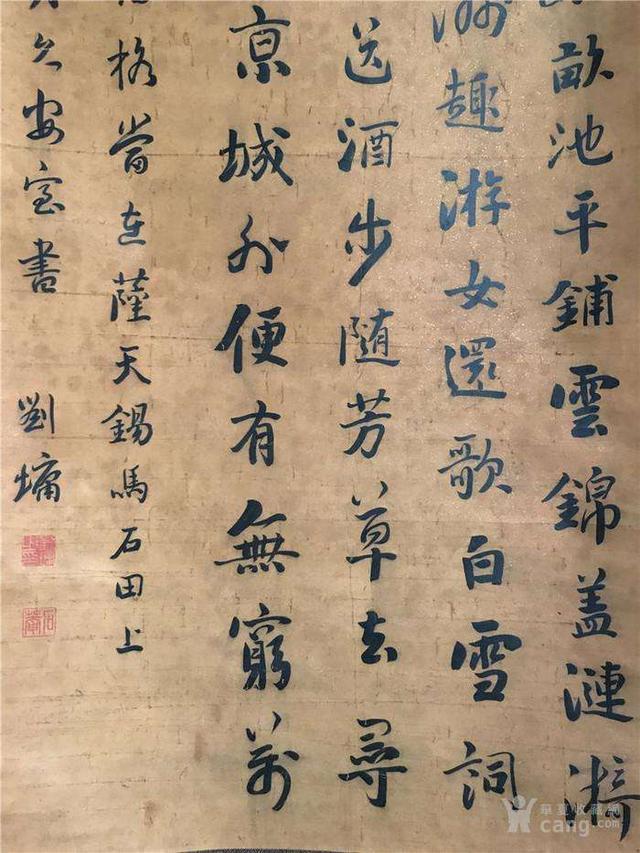 畝池平鋪雲錦蓋漣漪
洲趣游女還歌白雪詞
送酒步隨芳草去尋
京城外便有無窮萬
格當在薩天錫馬石田上
久安室書 劉墉
石菴
華夏收藏網
cang.com